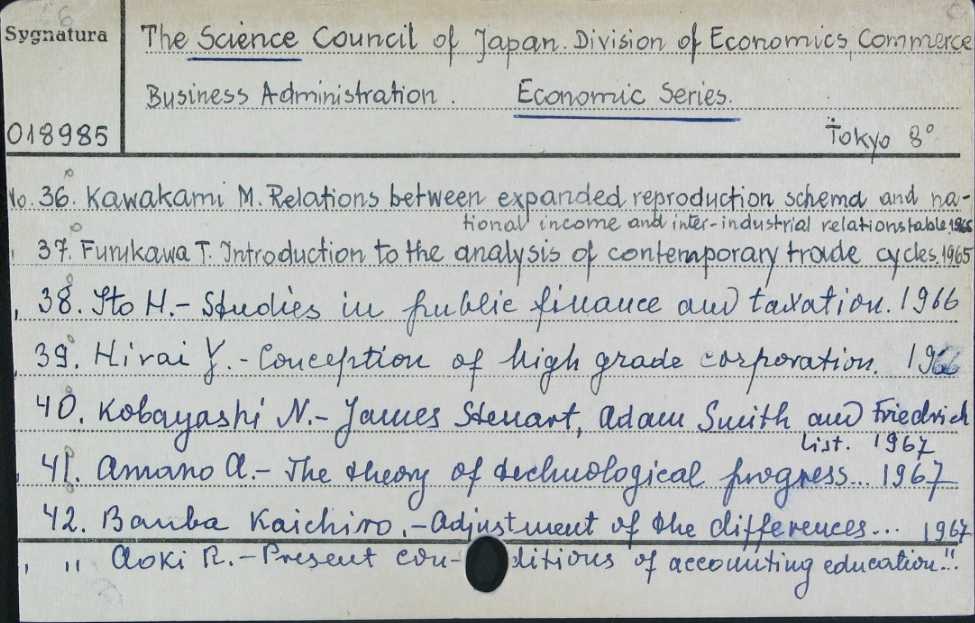 Sygnatura
The Science Council of Japan. Division of Economics, Commerce
Business Administration. Economic Series.
018985
Tokyo 8°
No. 36. Kawakami M. Relations between expanded reproduction schema and na-
tional income and inter-industrial relations table. 1966
37. Furukawa T. Introduction to the analysis of contemporary trade cycles. 1965
38. Ito H. - Studies in public finance and taxation. 1966
39. Hirai Y. - Conception of high grade corporation. 1966
40. Kobayashi N. - James Steuart, Adam Smith and Friedrich
List. 1967
41. Amano A. - The theory of technological progress... 1967
42. Banba Kaichiro. - Adjustment of the differences... 1967
" Aoki R. - Present con-ditions of accounting education "..